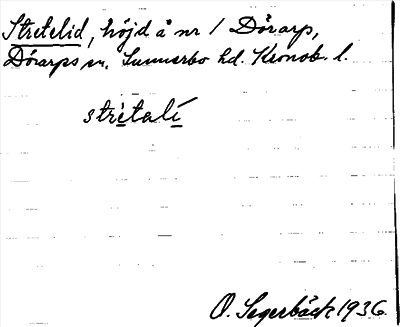 Stretelid, höjd å nr 1 Dörarp,
Dörarps sn. Sunnerbo hd. Kronob. l.
strìtalí
O. Segerbäck 1936.